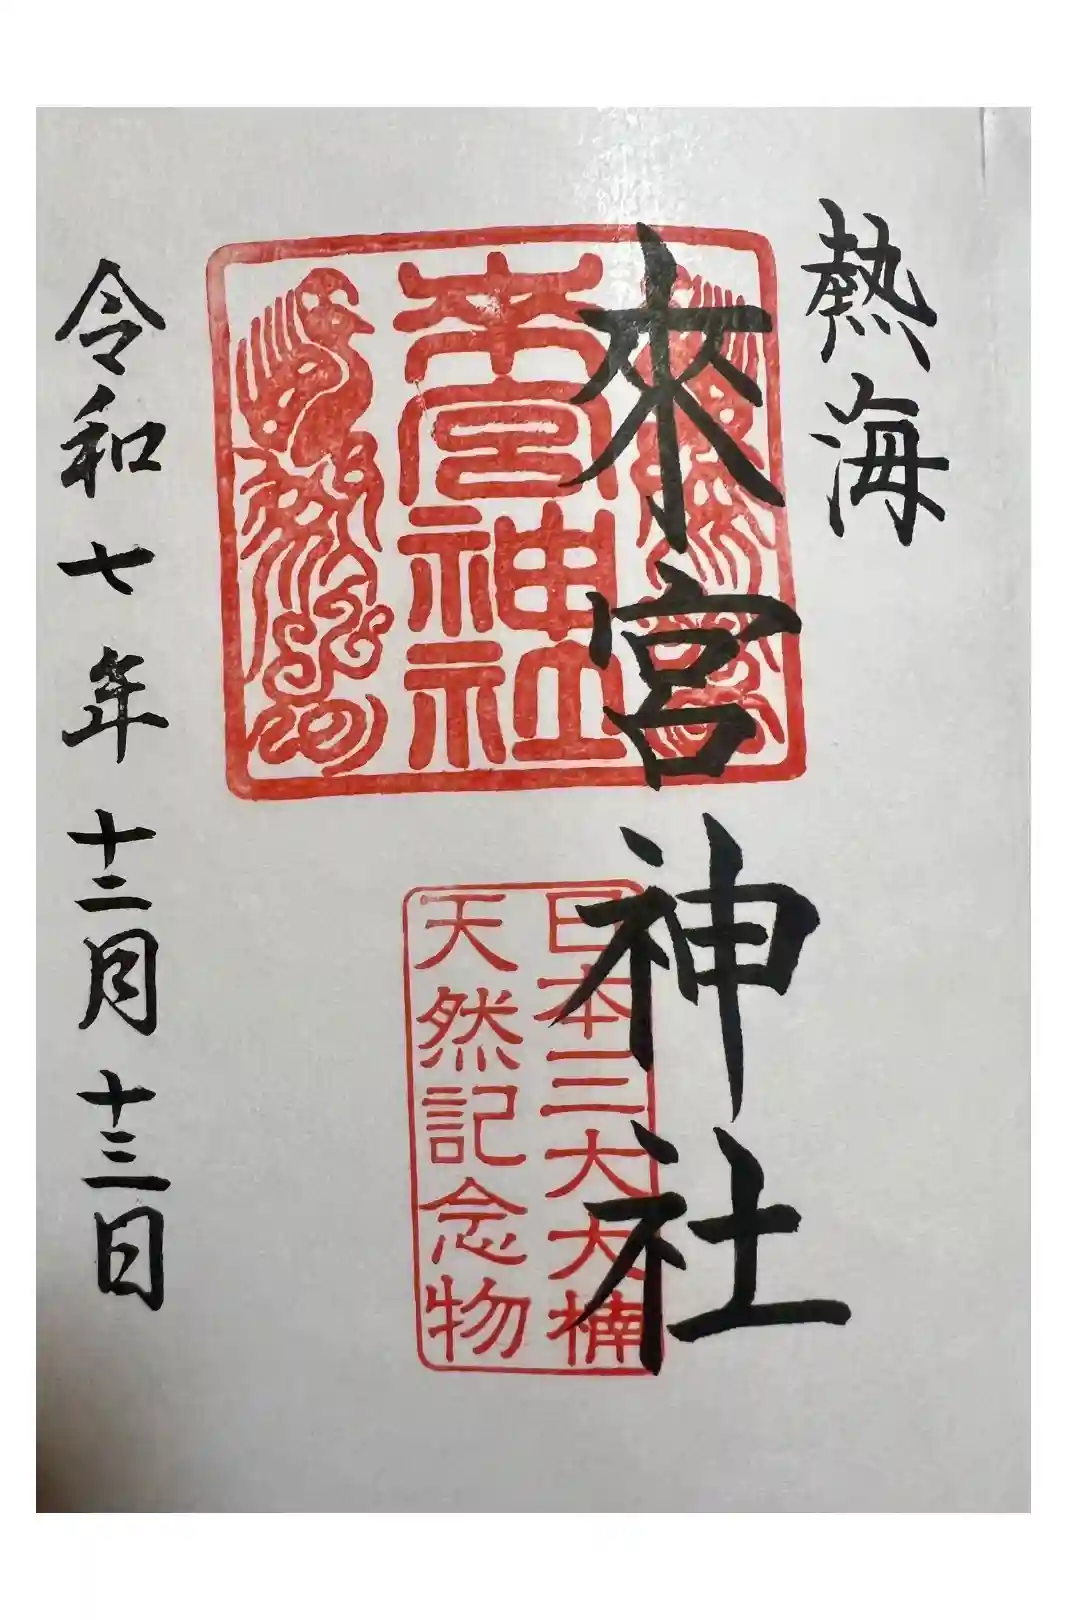 熱海
來宮神社
來宮神社
日本三大大楠
天然記念物
令和七年十二月十三日